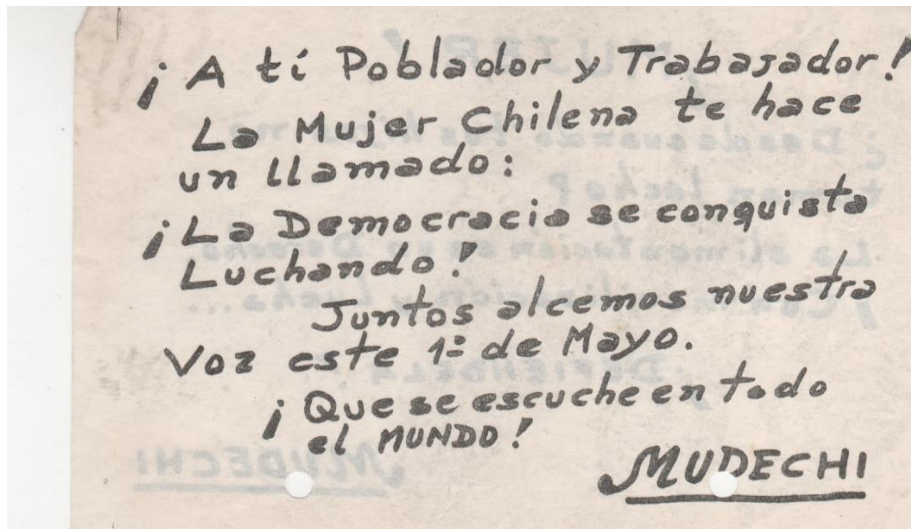 ¡A tí Poblador y Trabajador!
La Mujer Chilena te hace
un llamado:
¡La Democracia se conquista
Luchando!
Juntos alcemos nuestra
Voz este 1º de Mayo.
¡Que se escuche en todo
el MUNDO!
MUDECHI